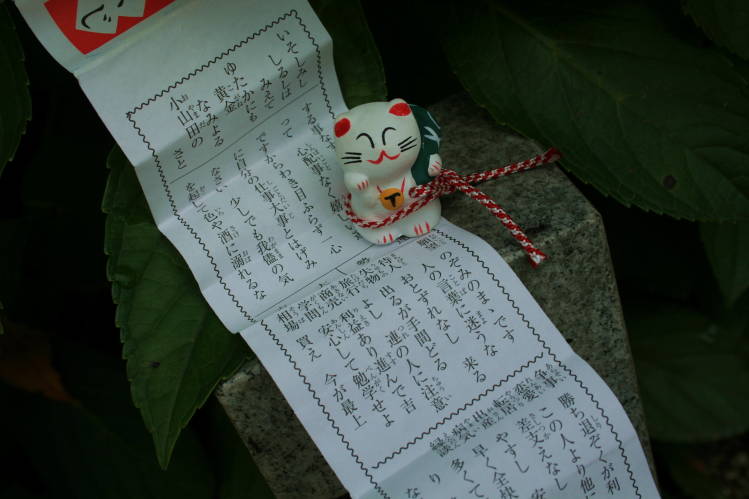 じ
いそしみし
しるしはみえて
ゆたかにも
黄金なみよる
小山田のさと
する事な
って 心配事なく嬉し
ですからわき目ふらず一心
に自分の仕事大事とはげみ
なさい 少しでも我儘の気
を起し色や酒に溺れるな
願望 のぞみのままです
人の言葉に迷うな
待人 おとずれなし 来る
失物 出るが手間どる
旅行 よし 連の人に注意
商売 利益あり進んでせよ 吉
学問 安心して勉学せよ
相場 買え 今が最上
争事 勝ち退くが利
恋愛 この人より他
転居 差支えなし
出産 やすし
病気 早く全快
縁談 多くて
なり